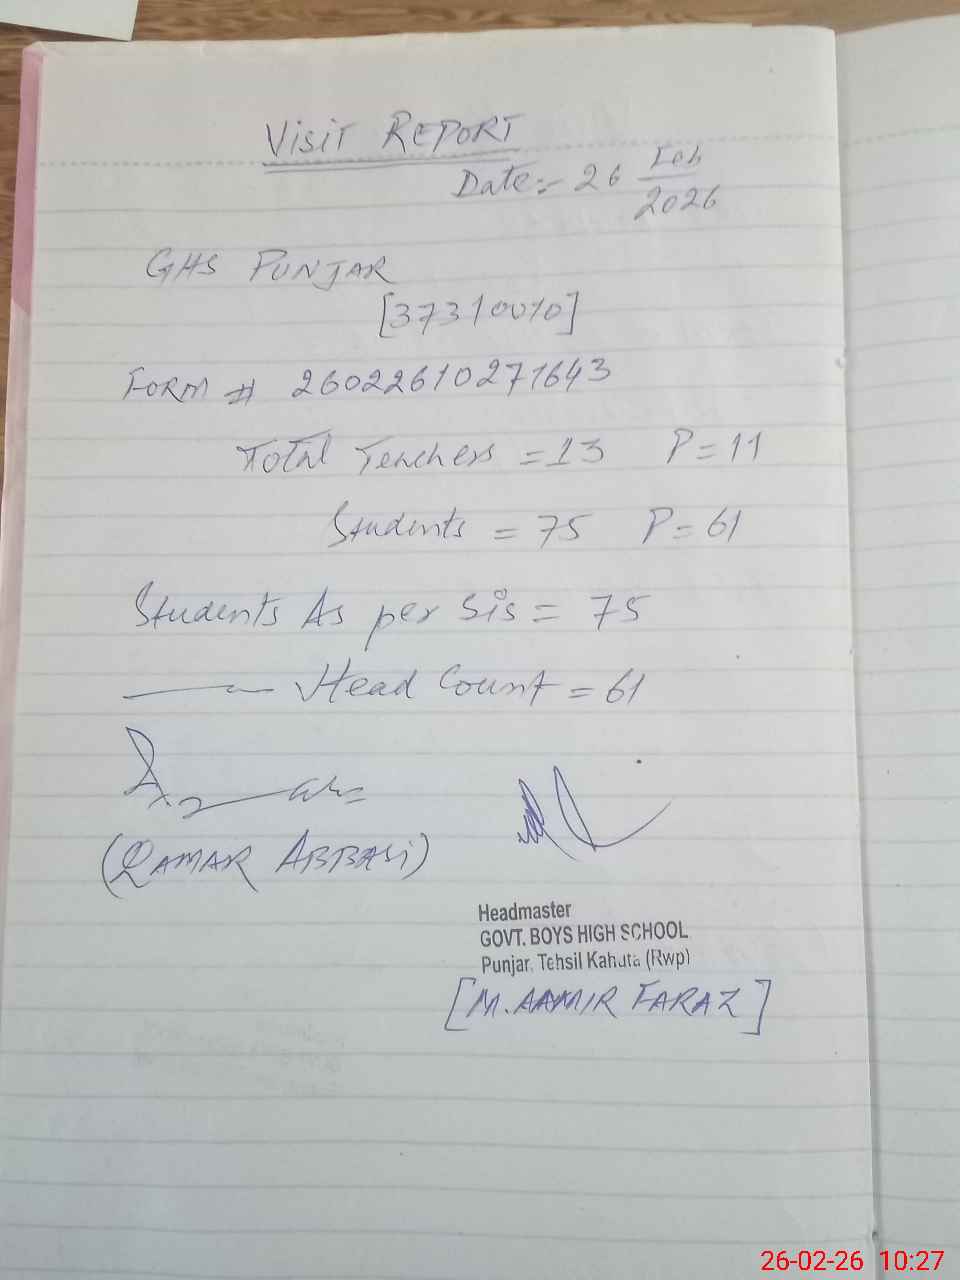 VISIT REPORT
Date:- 26 Feb 2026
GHS PUNJAR
[37310010]
FORM # 26022610271643
Total Teachers = 13 P = 11
Students = 75 P = 61
Students As per Sis = 75
Head Count = 61
(QAMAR ABBASI)
Headmaster
GOVT. BOYS HIGH SCHOOL
Punjar, Tehsil Kahuta (Rwp)
[M. AAMIR FARAZ]
26-02-26 10:27